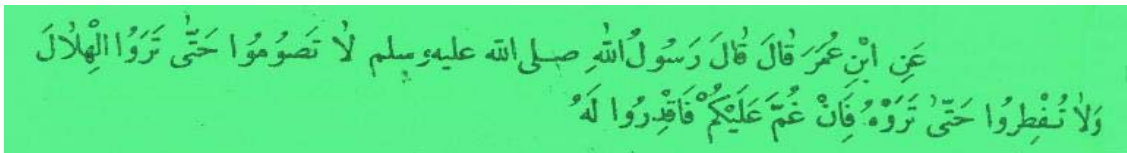 عَنِ ابْنِ عُمَرَ قَالَ قَالَ رَسُولُ اللّٰهِ صلى الله عليه وسلم لَا تَصُوْمُوْا حَتّٰى تَرَوُا الْهِلَالَ
وَلَا تُفْطِرُوا حَتّٰى تَرَوْهُ فَاِنْ غُمَّ عَلَيْكُمْ فَاقْدِرُوا لَهُ